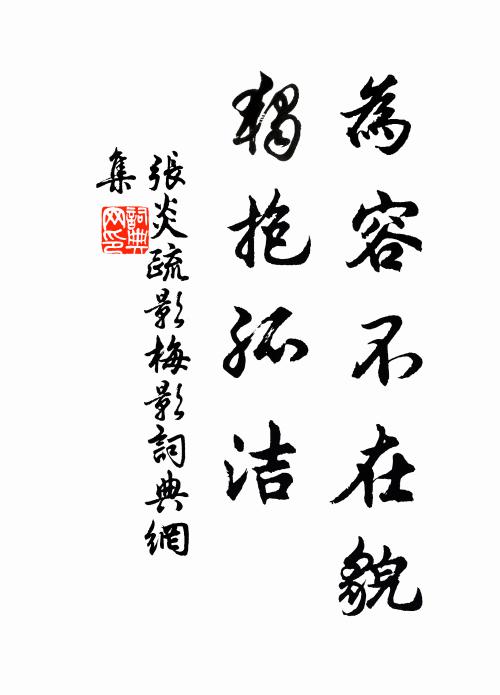 為容不在貌
獨抱孤洁
張炎疏影梅影詞典網
集
詞典网